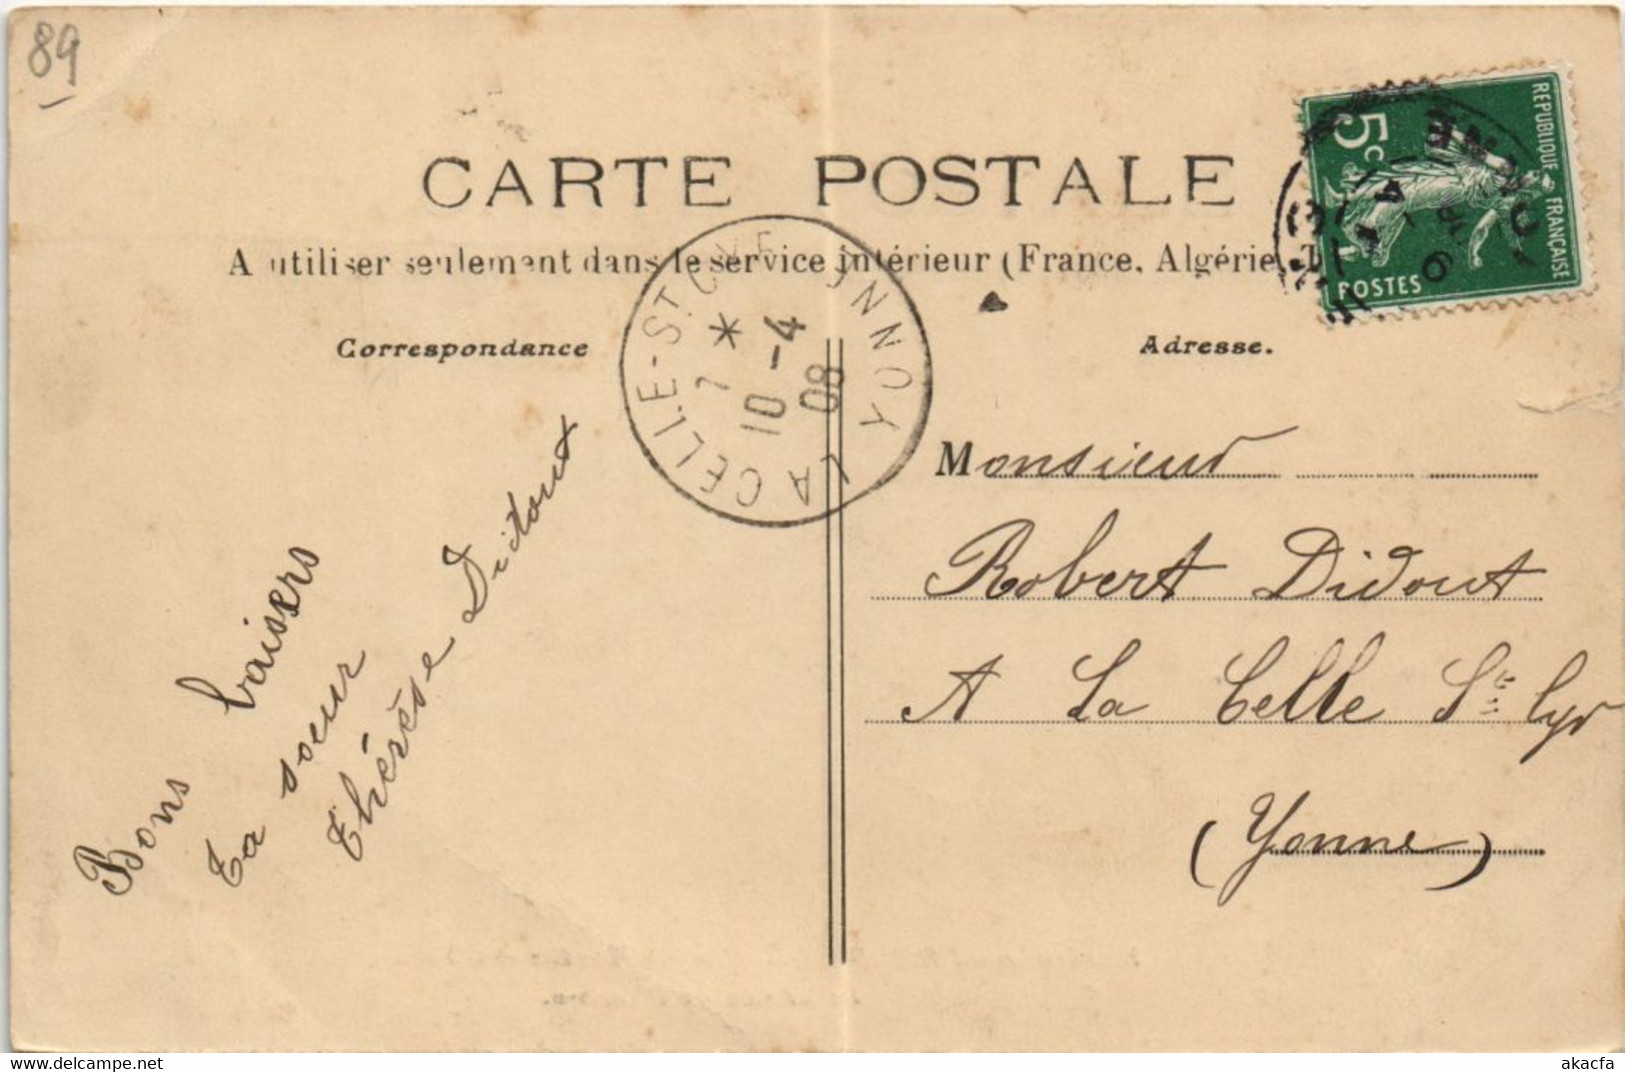 89
CARTE POSTALE
A utiliser seulement dans le service intérieur (France, Algérie
Correspondance
Adresse.
REPUBLIQUE FRANÇAISE
5c
POSTES
YONNE
9
LA CELLE-ST CYR YONNE
7 *
10-4
08
Monsieur
Robert Didout
A La Celle St Cyr
(Yonne)
Bons baisers
Ta soeur
Thérèse Didout
delcampe.net
akacfa